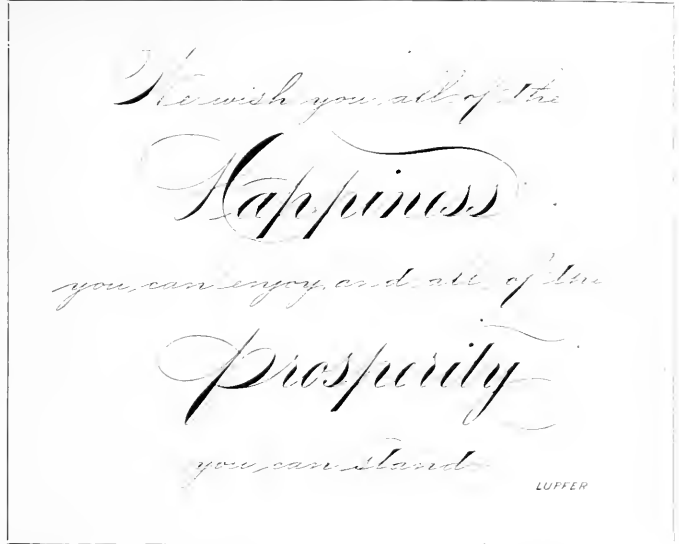 We wish you all of the
Happiness
you can enjoy and all of the
Prosperity
you can stand
LUPFER